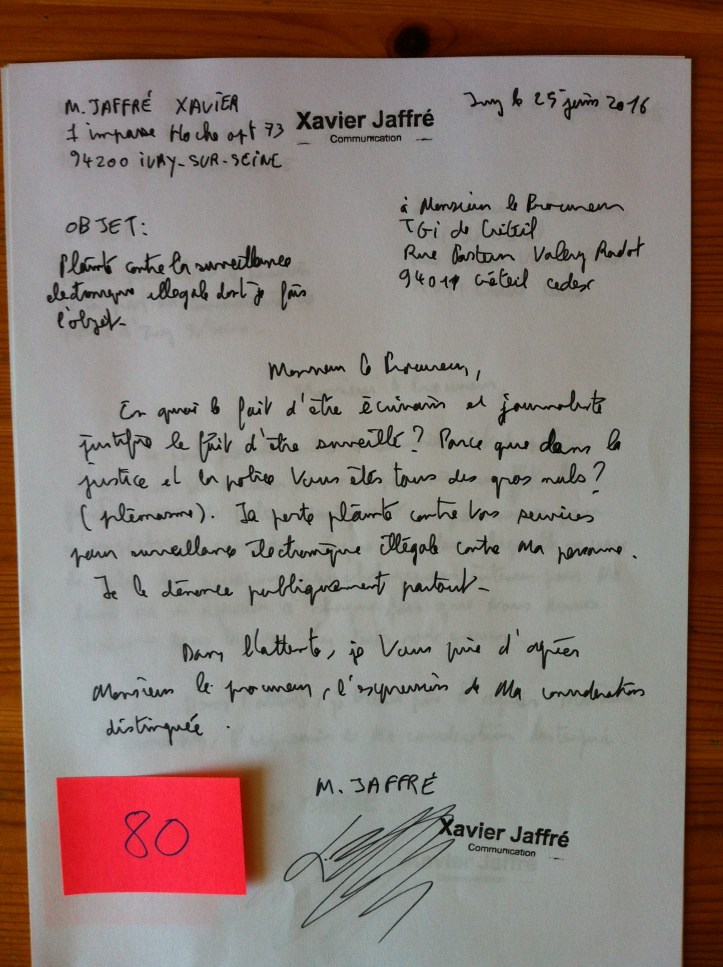 M. JAFFRÉ XAVIER
1 impasse Hoche apt 73
94200 IVRY-SUR-SEINE
Xavier Jaffré
Communication
Ivry le 25 juin 2016
à Monsieur le Procureur
TGI de Créteil
Rue Pasteur Valery Radot
94011 Créteil cedex
OBJET:
Plainte contre la surveillance
electronique illegale dont je fais
l'objet-
Monsieur le Procureur,
En quoi le fait d'être écrivain et journaliste
justifie le fait d'être surveillé? Parce que dans la
justice et la police Vous êtes tous des gros nuls?
(pléonasme). Je porte plainte contre Vos services
pour surveillance électronique illégale contre Ma personne.
Je le dénonce publiquement partout-
Dans l'attente, je Vous prie d'agréer
Monsieur le procureur, l'expression de Ma considération
distinguée.
M. JAFFRÉ
Xavier Jaffré
Communication
80